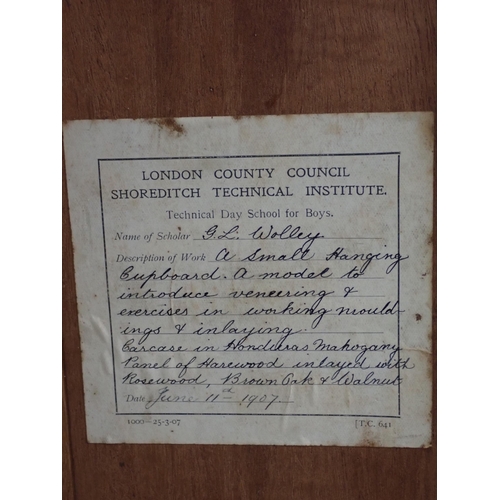 LONDON COUNTY COUNCIL
SHOREDITCH TECHNICAL INSTITUTE.
Technical Day School for Boys.
Name of Scholar G.L. Wolley
Description of Work A Small Hanging
Cupboard. A model to
introduce veneering &
exercises in working mould-
ings & inlaying.
Carcase in Honduras Mahogany
Panel of Harewood inlayed with
Rosewood, Brown Oak & Walnut
Date June 11th 1907
1000—25-3-07 [T.C. 641